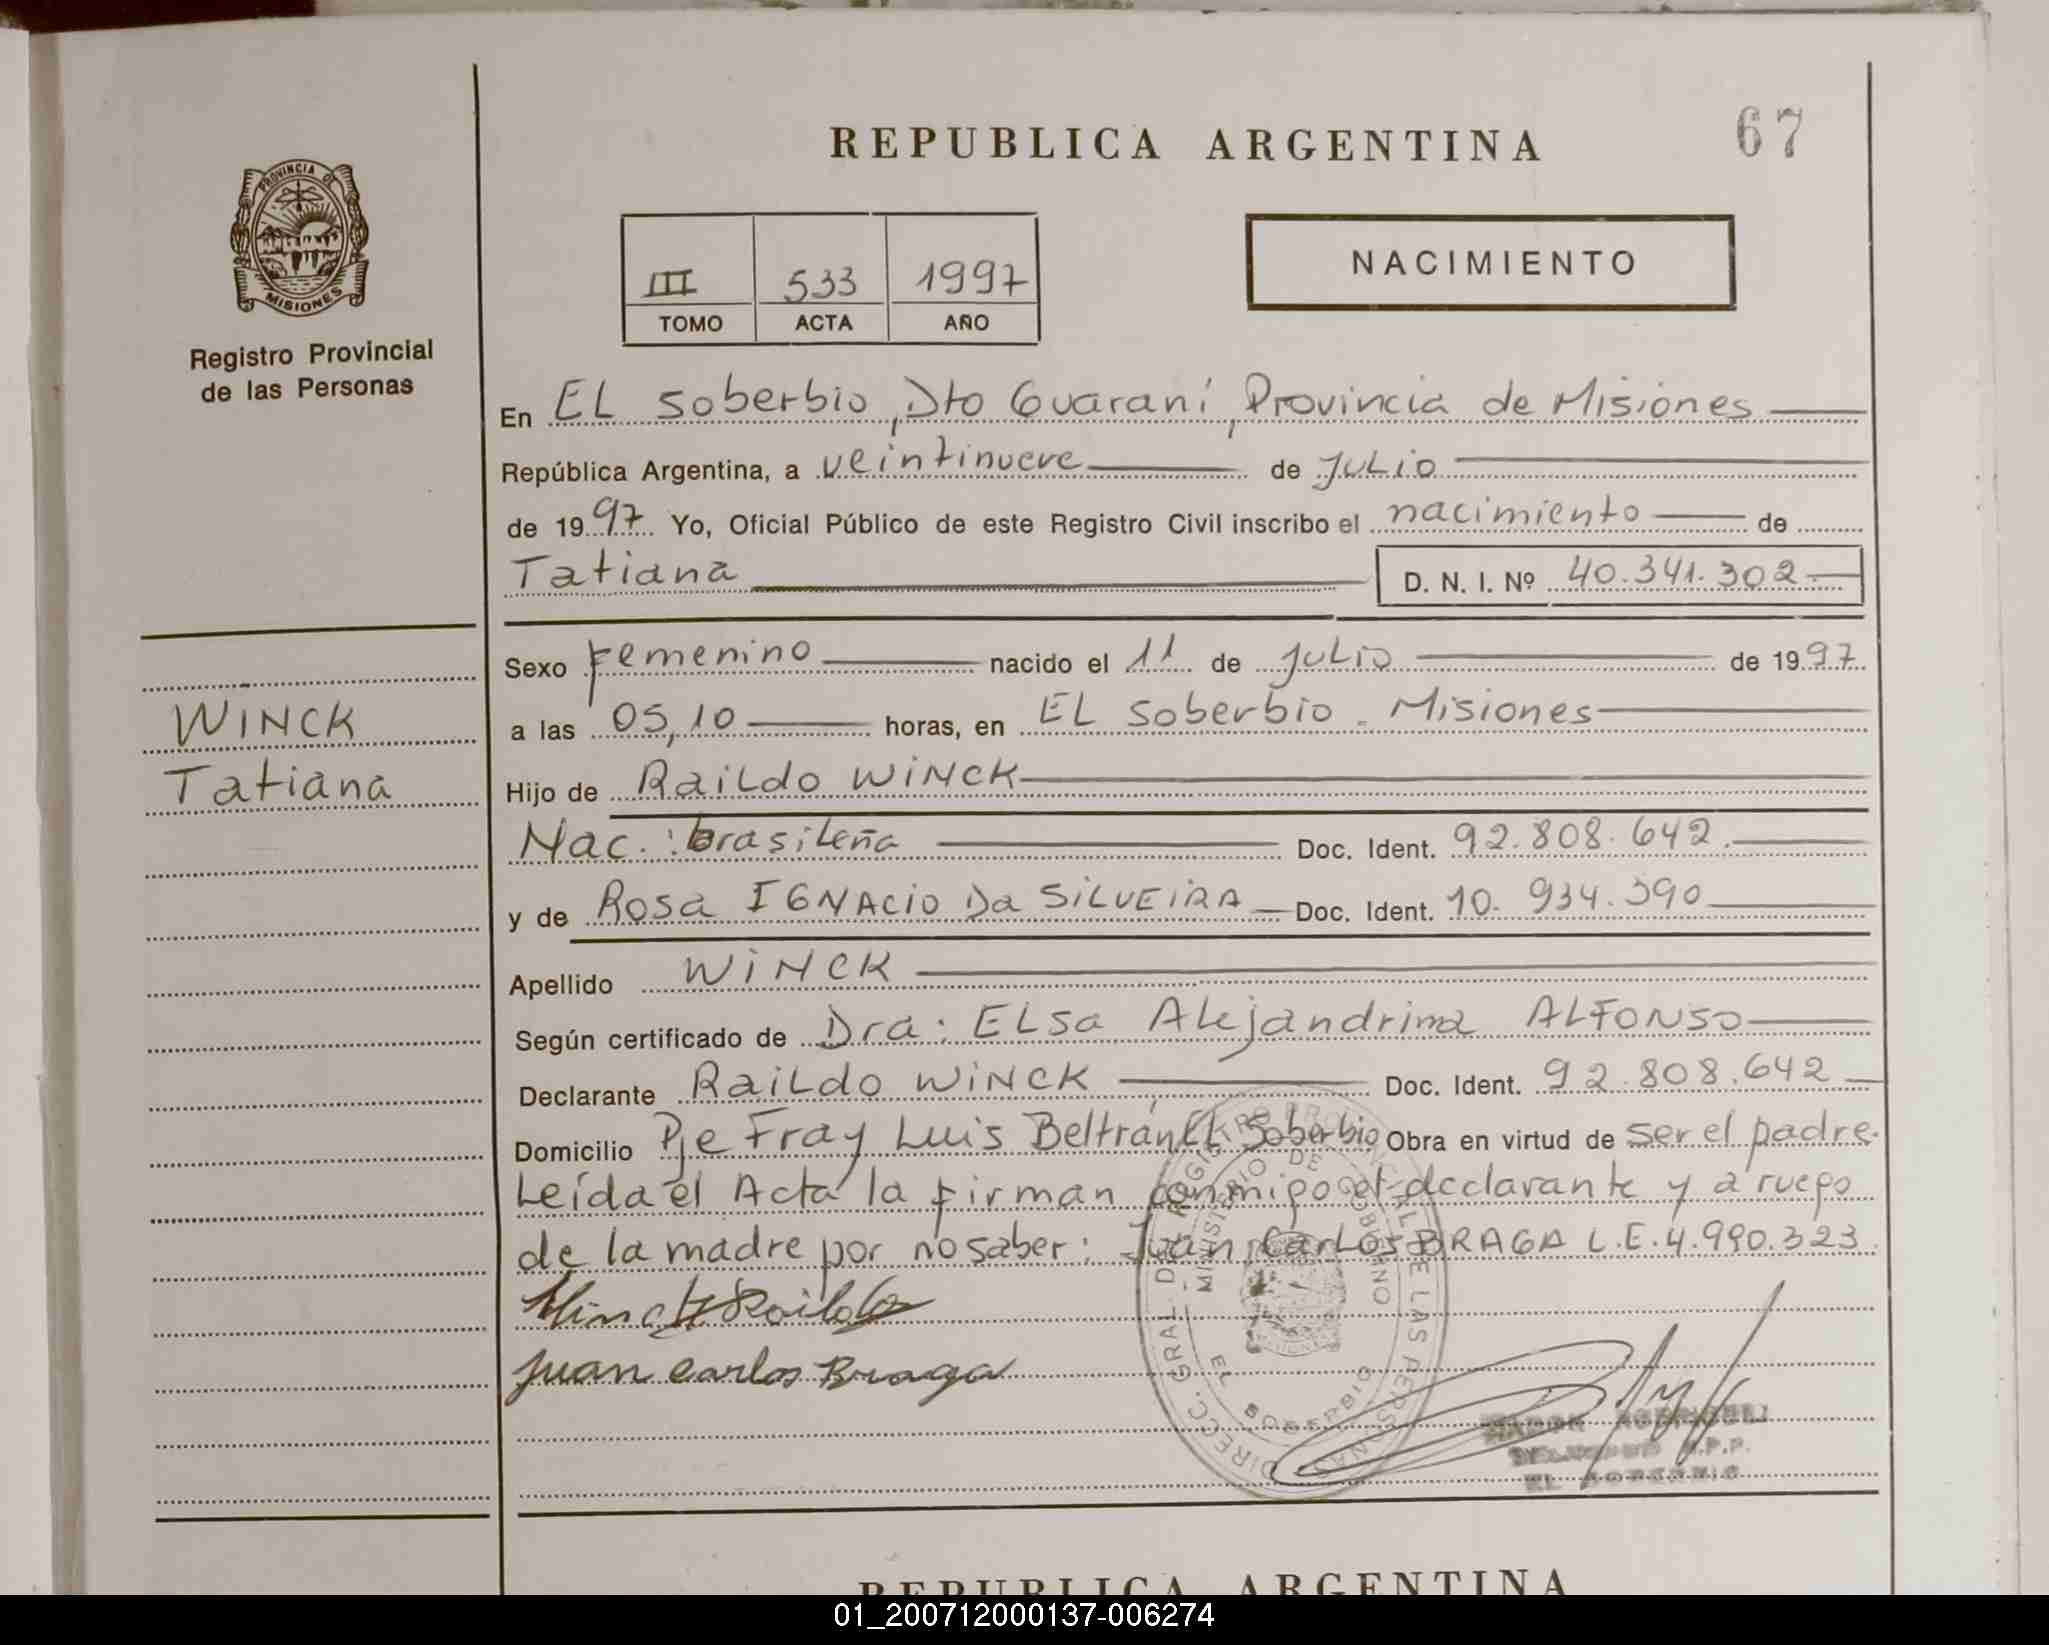 REPUBLICA ARGENTINA
67
PROVINCIA DE
MISIONES
Registro Provincial
de las Personas
III 533 1997
TOMO ACTA AÑO
NACIMIENTO
En EL Soberbio, Dto Guaraní, Provincia de Misiones
República Argentina, a veintinueve de JuLio
de 1997 Yo, Oficial Público de este Registro Civil inscribo el nacimiento de
Tatiana D. N. I. Nº 40.341.302
Sexo Femenino nacido el 11 de JuLio de 1997
a las 05,10 horas, en EL Soberbio - Misiones
WINCK
Tatiana
Hijo de RaiLdo WINCK
Nac.: brasileña Doc. Ident. 92.808.642
y de Rosa IGNACIO Da SILVEIRA Doc. Ident. 10.934.390
Apellido WINCK
Según certificado de Dra: ELSa Alejandrina ALFONSO
Declarante RaiLdo WINCK Doc. Ident. 92.808.642
Domicilio Pje Fray Luis Beltrán EL Soberbio Obra en virtud de ser el padre.
Leída el Acta la firman conmigo el declarante y a ruego
de la madre por no saber: Juan CarLos BRAGA L.E. 4.990.323
Winck Raildo
Juan Carlos Braga
DIRECC. GRAL. DEL REGISTRO PROVINCIAL DE LAS PERSONAS
MINISTERIO DE GOBIERNO
EL SOBERBIO
RAMON RODRIGUEZ
DELEGADO R.P.P.
EL SOBERBIO
REPUBLICA ARGENTINA
01_200712000137-006274